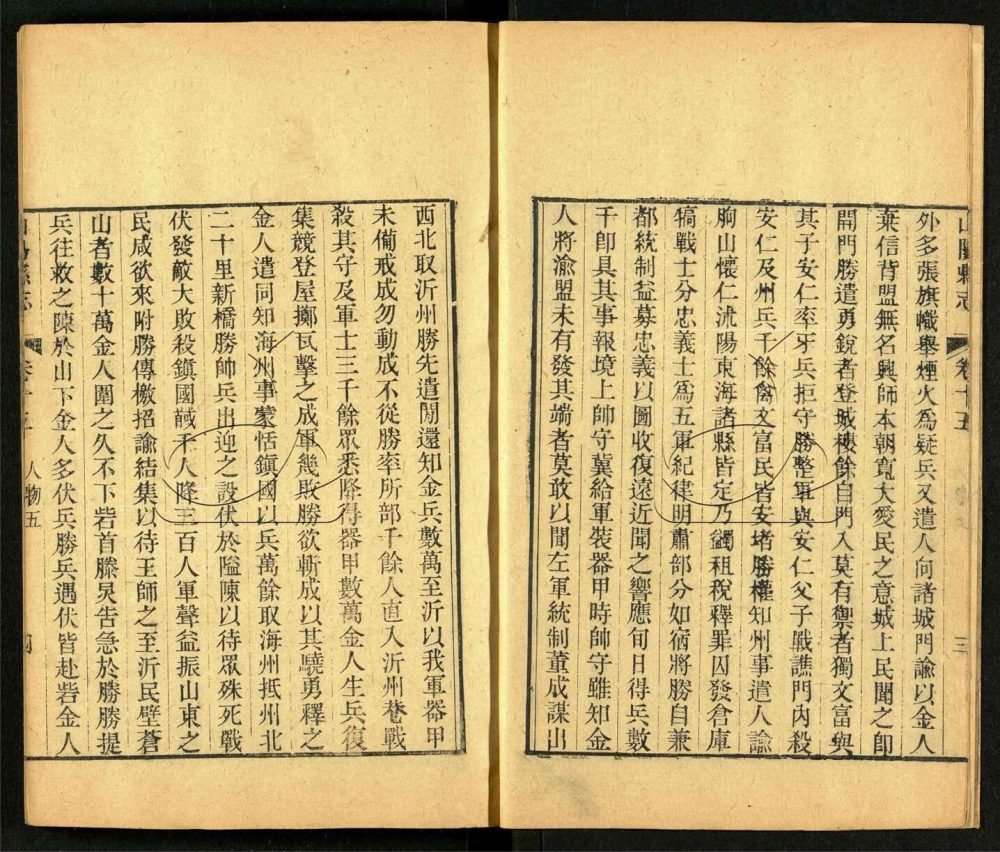 山陽縣志
卷十五
三
外多張旗幟舉煙火爲疑兵又遣人向諸城門諭以金人
棄信背盟無名興師本朝寬大愛民之意城上民聞之卽
開門勝遣勇銳者登城樓餘自門入莫有禦者獨文富與
其子安仁率牙兵拒守勝整軍與安仁父子戰譙門內殺
安仁及州兵千餘禽文富民皆安堵勝權知州事遣人諭
朐山懷仁沭陽東海諸縣皆定乃蠲租稅釋罪囚發倉庫
犒戰士分忠義士爲五軍紀律明肅部分如宿將勝自兼
都統制益募忠義以圖收復遠近聞之響應旬日得兵數
千卽具其事報境上帥守冀給軍裝器甲時帥守雖知金
人將渝盟未有發其端者莫敢以聞左軍統制董成謀出
西北取沂州勝先遣閒還知金兵數萬至沂以我軍器甲
未備戒成勿動成不從勝率所部千餘人直入沂州巷戰
殺其守及軍士三千餘眾悉降得器甲數萬金人生兵復
集競登屋擲瓦擊之成軍幾敗勝欲斬成以其驍勇釋之
金人遣同知海州事蒙恬鎮國以兵萬餘取海州抵州北
二十里新橋勝帥兵出迎之設伏於隘陳以待眾殊死戰
伏發敵大敗殺鎮國馘千人降三百人軍聲益振山東之
民咸欲來附勝傳檄招諭結集以待王師之至沂民壁蒼
山者數十萬金人圍之久不下砦首滕炅告急於勝勝提
兵往救之陳於山下金人多伏兵勝兵遇伏皆赴砦金人
山陽縣志
卷十五
人物五
四